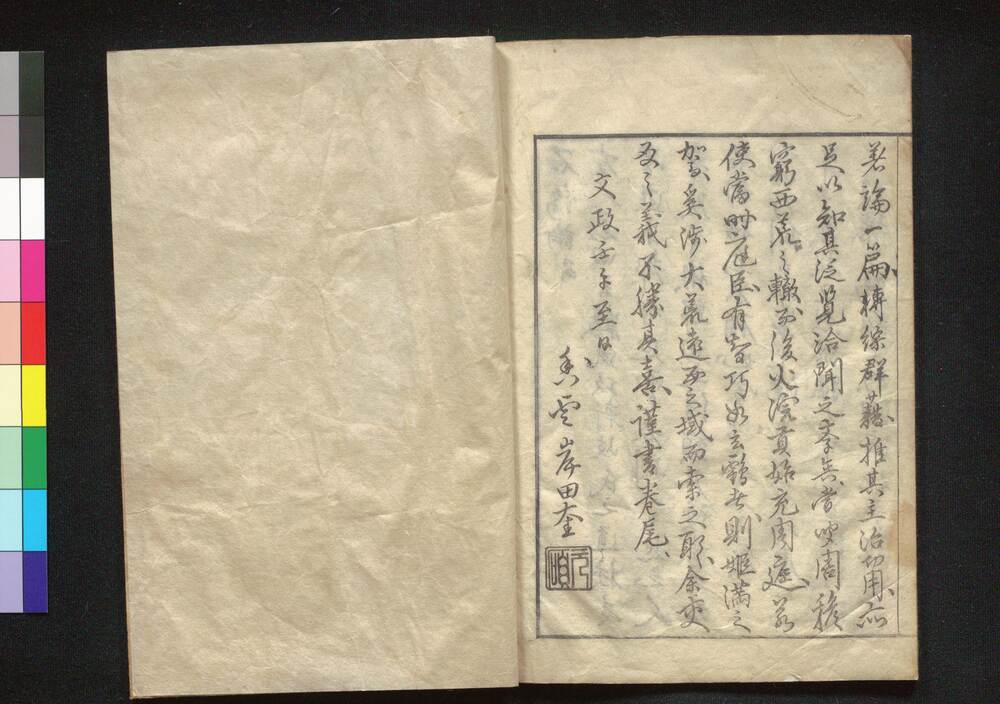 若論一篇轉綜群藉推其主治功用亦
足以知其泛覧洽聞之李矣嘗聞周穆
窮西荒之轍而後火浣貢始充周庭若
使當時庭臣有智巧如玄霸者則姫満之
駕奚渉大荒遠西之域而索之耶余
之義不勝其喜謹書巻尾
文政壬午至日
雲岸田奎